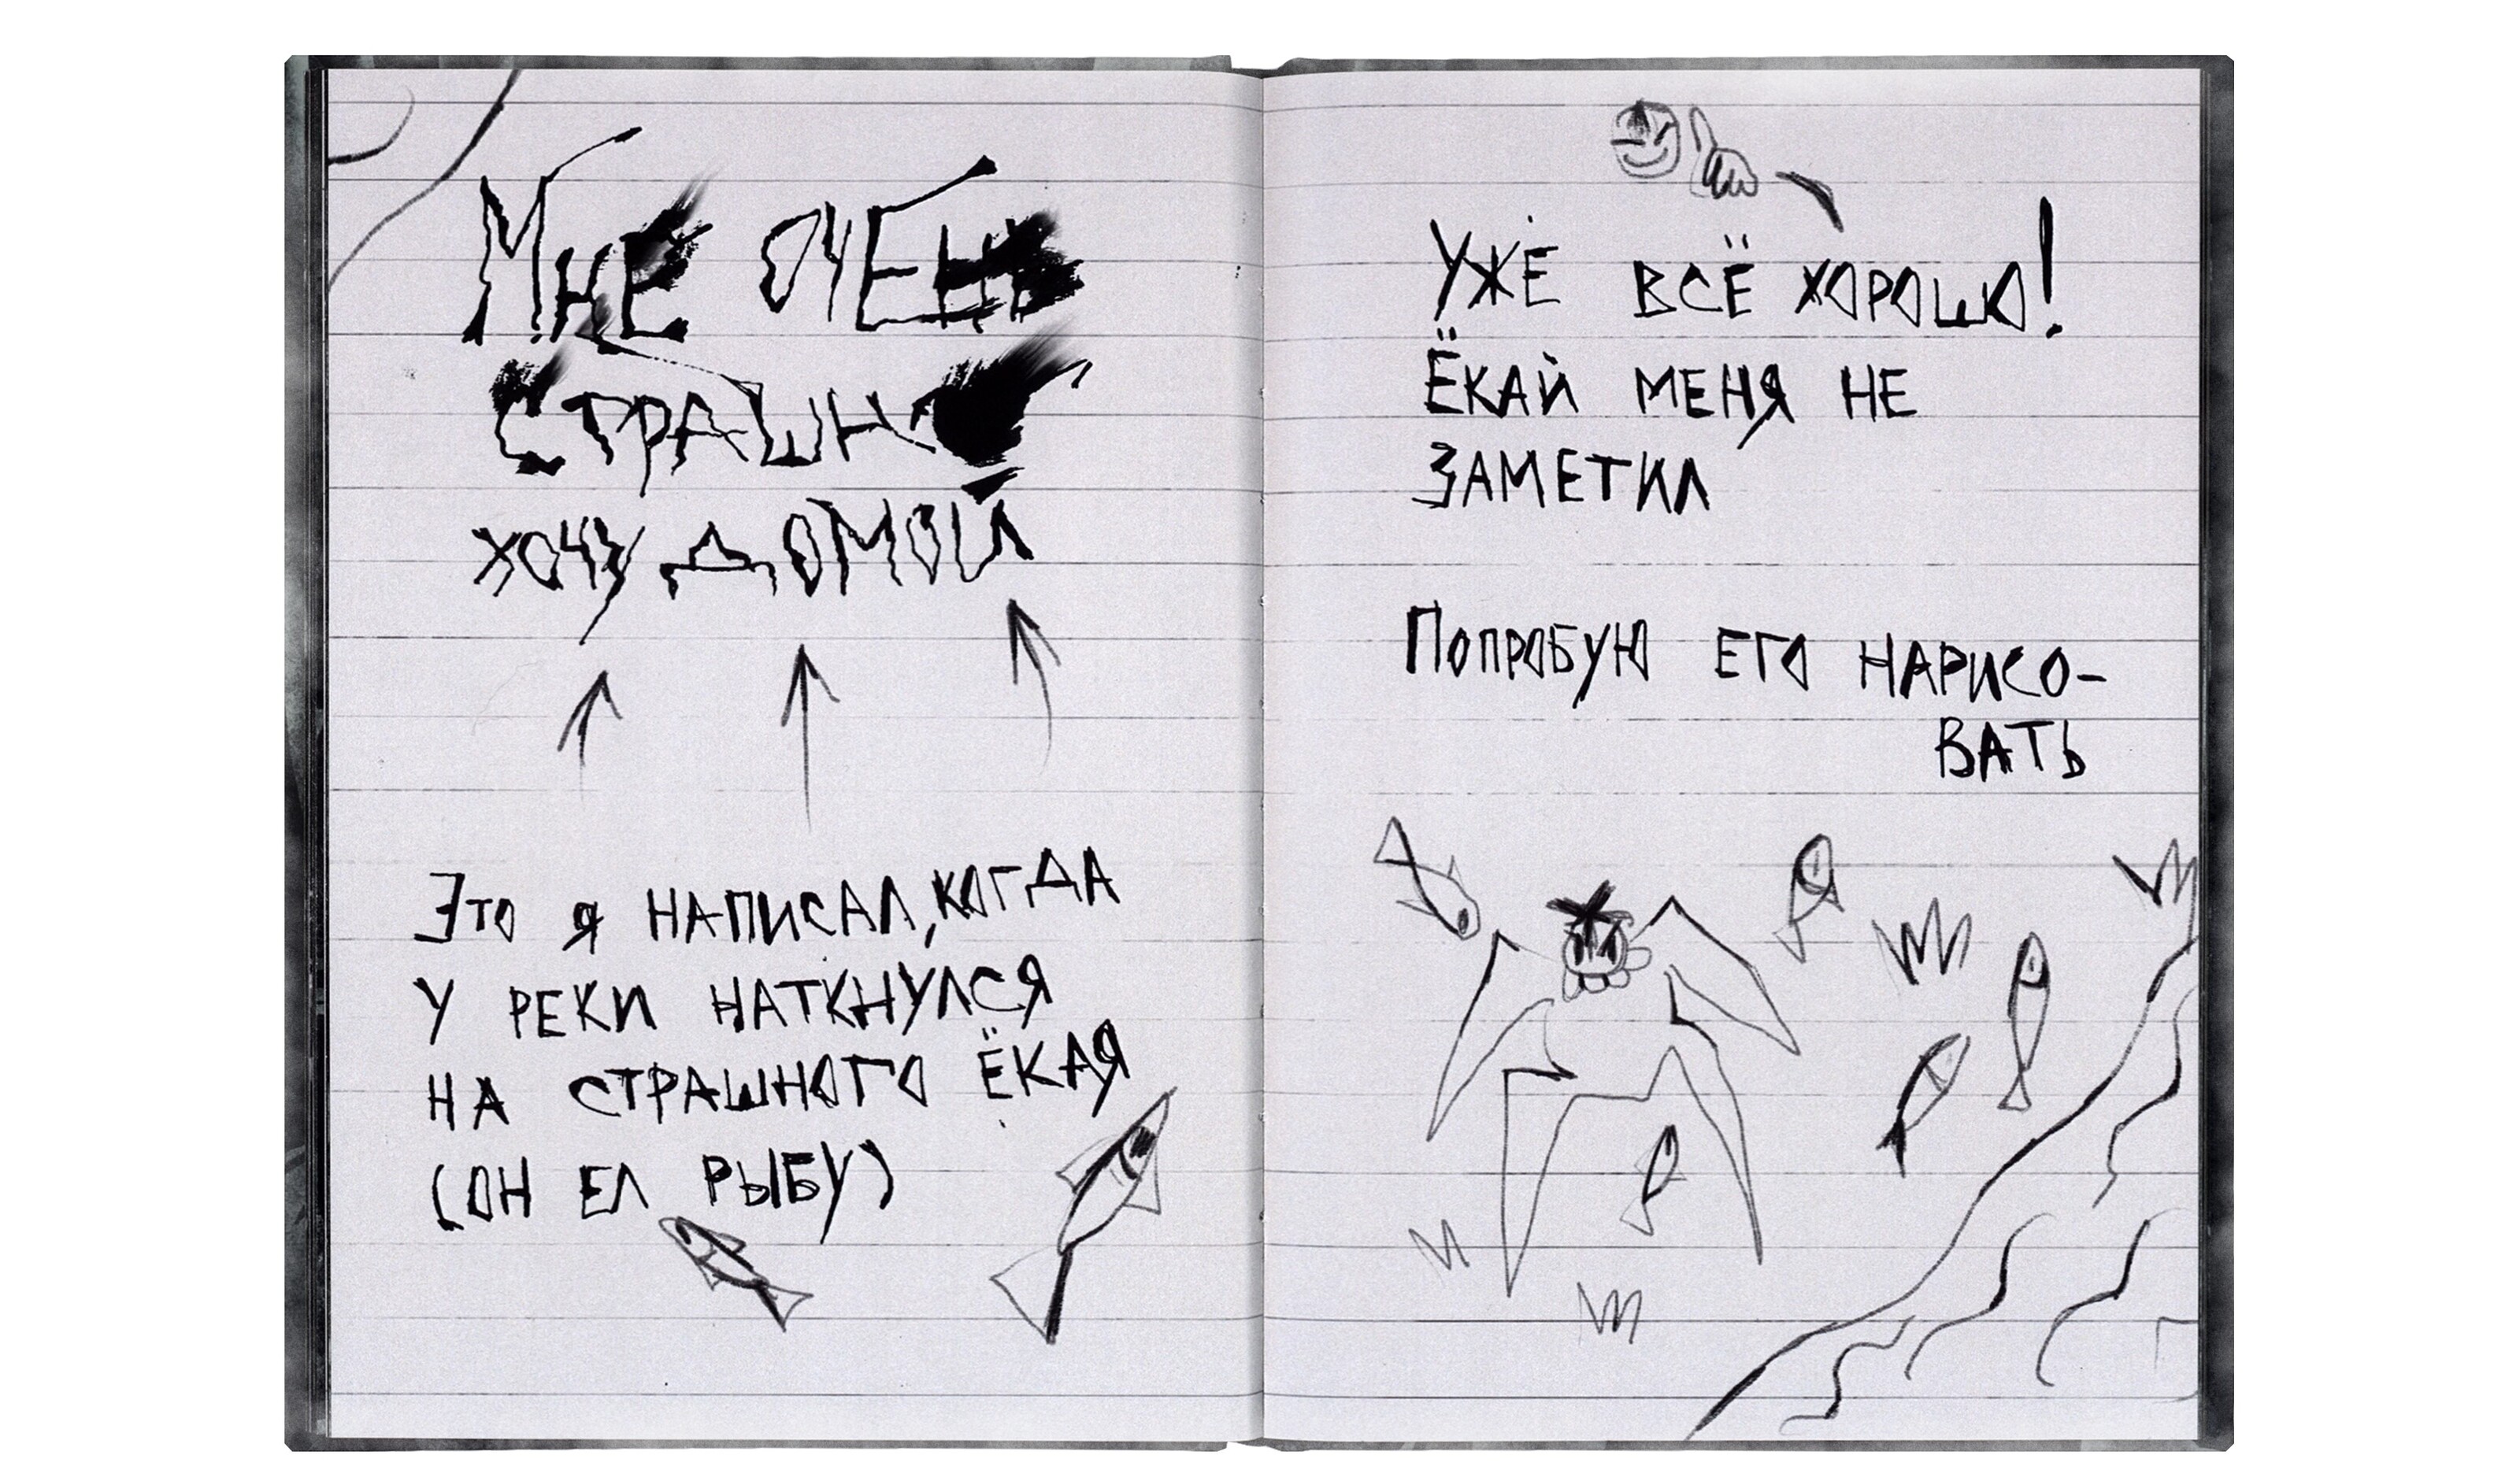 Мне очень
страшно
хочу домой
Это я написал, когда
у реки наткнулся
на страшного Ёкая
(он ел рыбу)
Уже всё хорошо!
Ёкай меня не
заметил
Попробую его нарисо-
вать